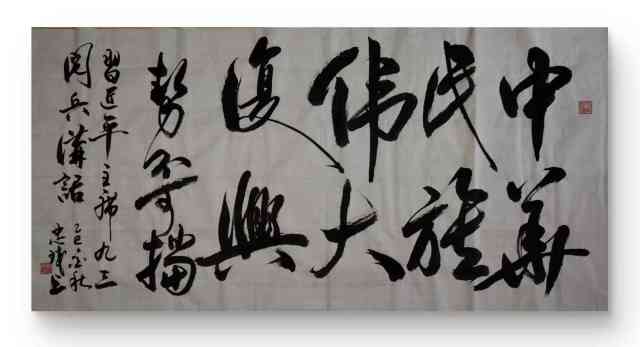 中華
民族
伟大
復興
勢不可擋
習近平主席九三
閱兵講話
乙巳金秋